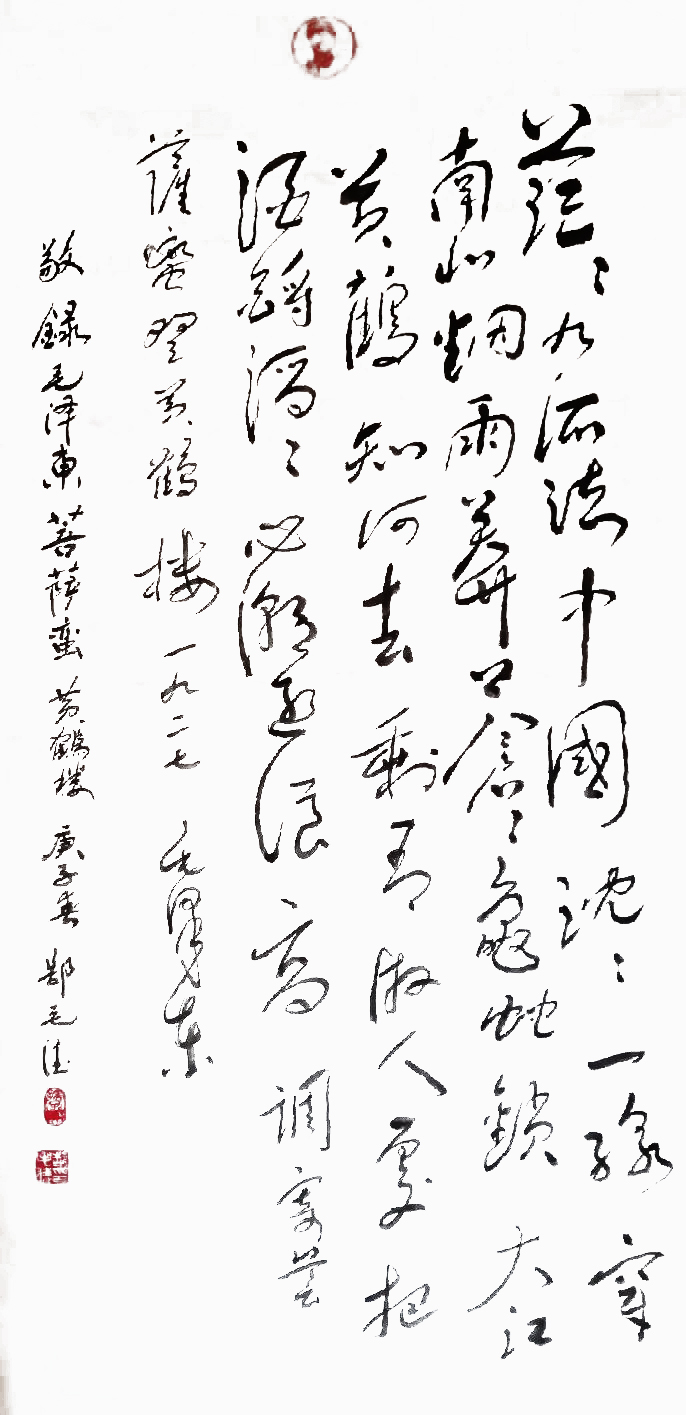 茫〻九派流中國沈〻一線穿
南北烟雨莽蒼〻龜蛇鎖大江
黄鶴知何去剩有遊人處把
酒酹滔〻心潮逐浪高 調寄菩
薩蠻登黄鶴樓 一九二七 毛澤東
敬録毛泽東菩萨蛮 黄鶴楼 庚子春